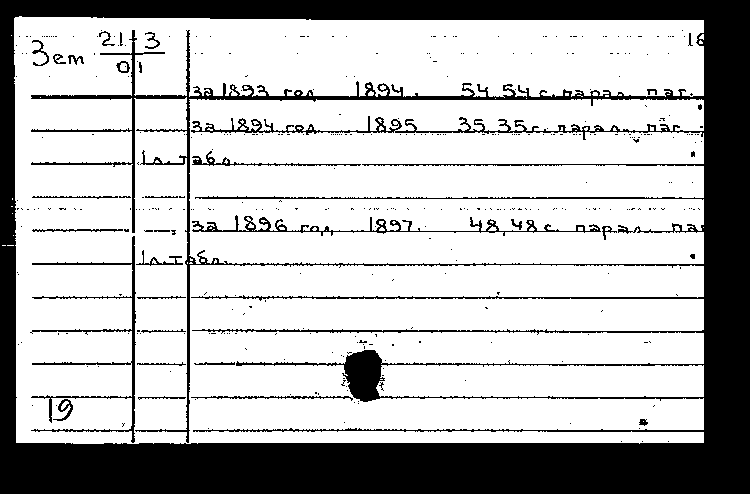 Зет 21-3 16
01
за 1893 год 1894. 54,54 с. парал. паг.
за 1894 год 1895 35,35 с. парал. паг.;
1 л. табл.
за 1896 год, 1897. 48,48 с. парал. паг
1 л. табл.
19